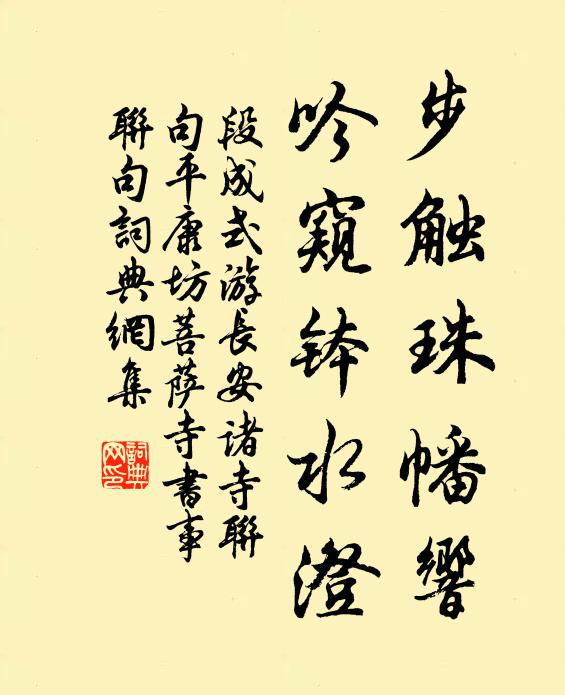 步触珠幡響
吟窺钵水澄
段成式游長安諸寺聯
句平康坊菩薩寺書事
聯句詞典網集
詞典
网印